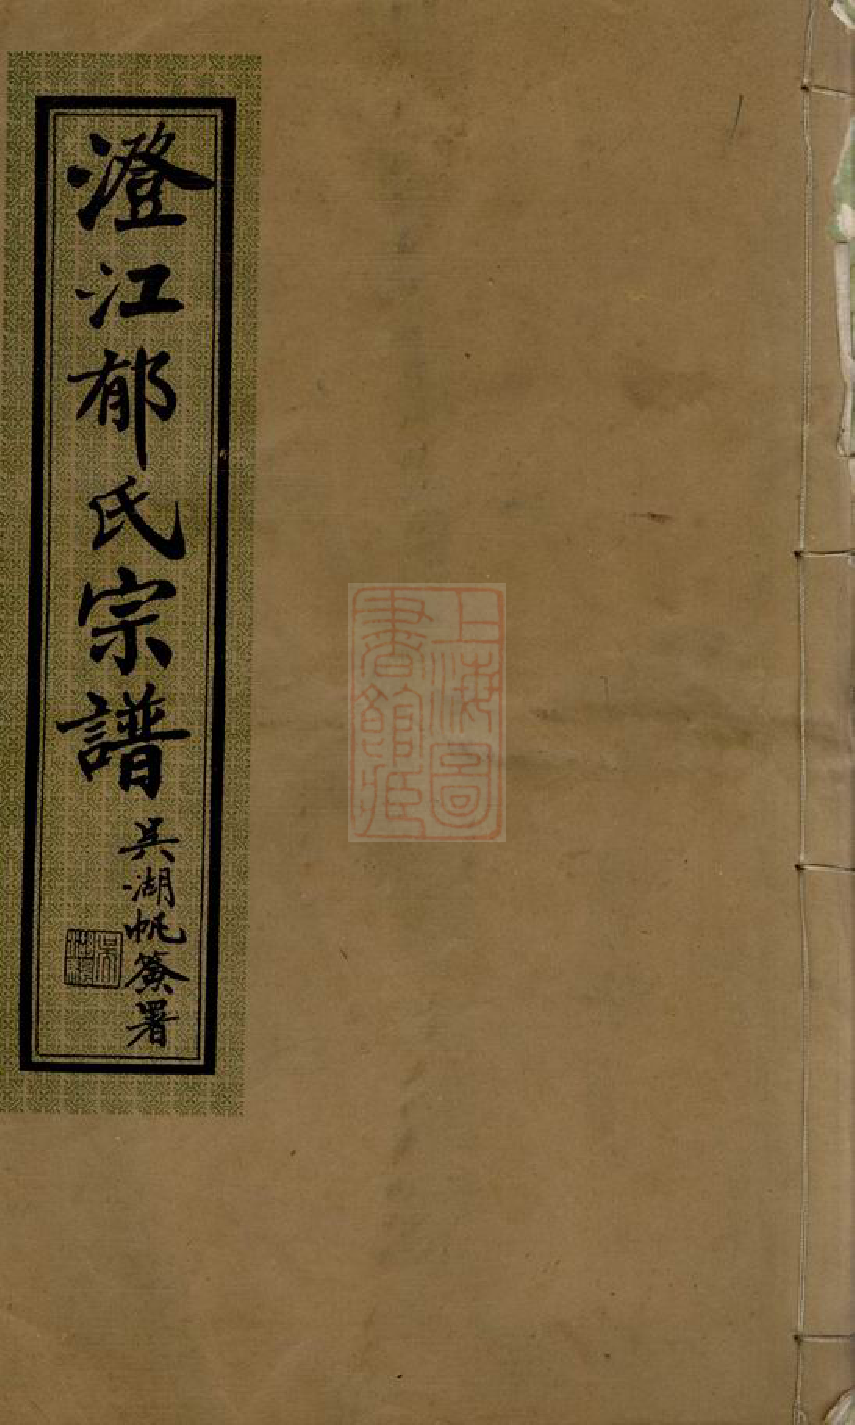 澄江郁氏宗譜
吳湖帆簽署
上海圖
書館藏